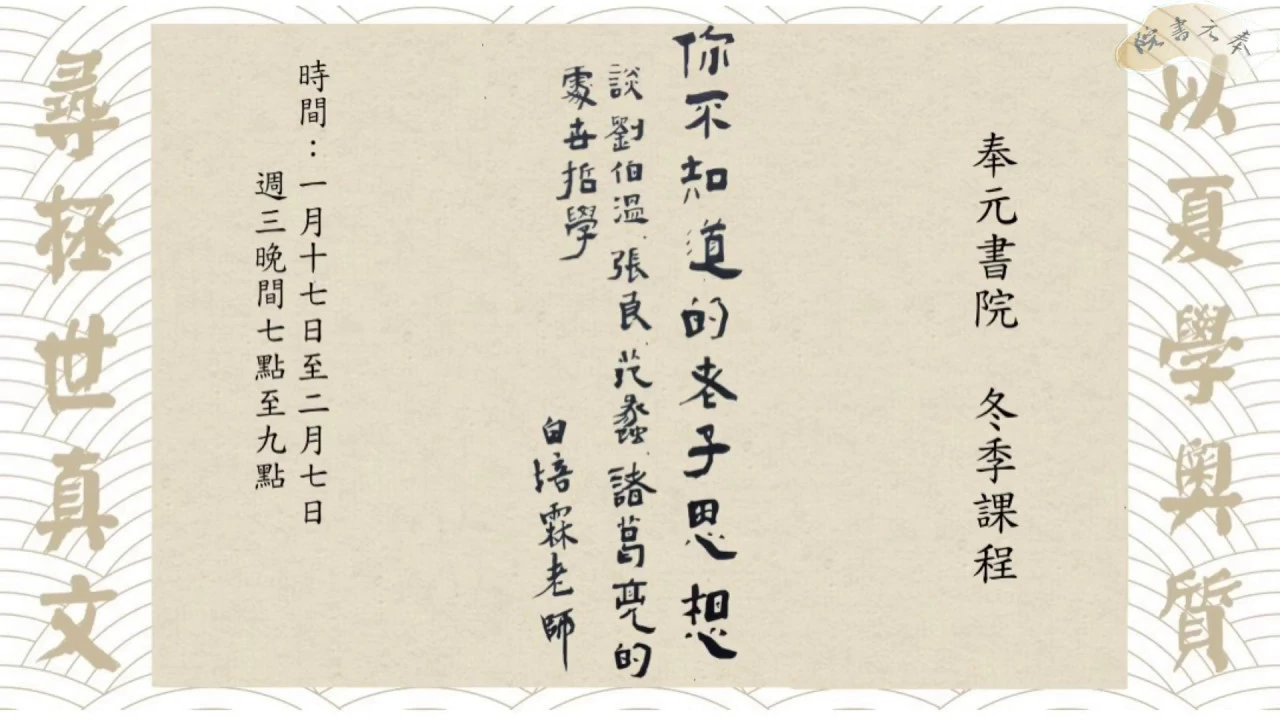 奉元書院
以夏學奧質
奉元書院 冬季課程
你不知道的老子思想
談劉伯溫、張良、范蠡、諸葛亮的
處世哲學
白培霖老師
時間：一月十七日至二月七日
週三晚間七點至九點
尋拯世真文